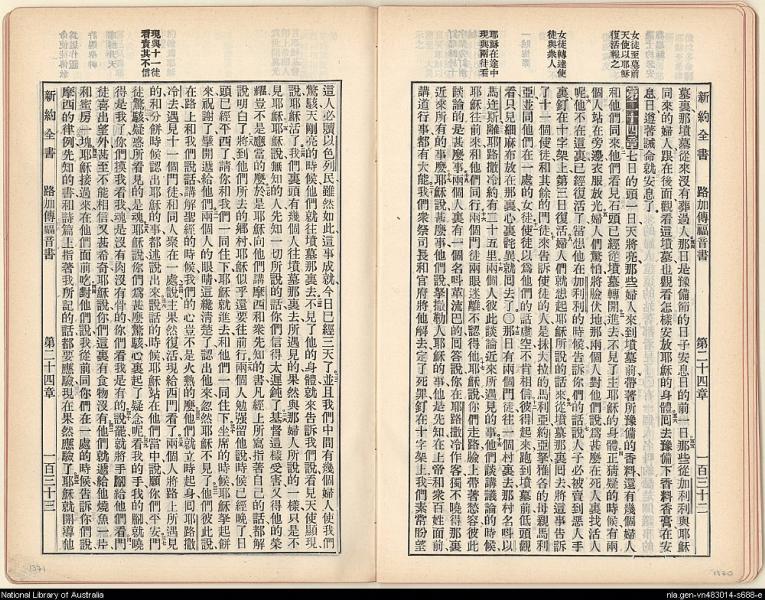 新約全書 路加傳福音書 第二十四章 一百三十二
女徒至墓前
天使以耶穌
復活報之
女徒轉達使
徒與衆人
耶穌在途中
墓裏那墳墓從來沒有葬過人那日是豫備節的日子安息日的前一日那些從加利利與耶穌
同來的婦人跟在後面觀看這墳墓也觀看怎樣安放耶穌的身體囘去豫備下香料香膏在安
息日遵著誡命就安息了
第二十四章七日的頭一日天將亮那些婦人來到墳墓前帶著所豫備的香料還有幾個婦人
和他們同來他們看見石頭已經從墳墓轉開進去不見了主耶穌的身體正猜疑的時候有兩
個人站在旁邊衣服放光婦人們驚怕將臉伏地那兩個人對他們說爲甚麼在死人裏找活人
呢他不在這裏已經復活了當想他在加利利的時候告訴你們的話說人子必被賣到惡人手
裏釘在十字架上第三日復活婦人們就想起耶穌所說的話來從墳墓那裏囘去將這事告訴
了十一個使徒和其餘的門徒來告訴使徒的人是抹大拉的馬利亞約亞拏雅各的母親馬利
亞並同他們在一處的女徒使徒以爲他們的話虛空不肯相信彼得起來跑到墳墓前低頭觀
看只見細麻布放在那裏心裏詫異就囘去了○那日有兩個門徒往一個村裏去那村名叫以
馬迕斯離耶路撒冷約有二十五里兩個人彼此談論近來所遇見的事他們談講議論的時候
耶穌往前來和他們同行兩個門徒兩眼迷離不認得他耶穌說你們走路臉上帶著愁容彼此
談論的是甚麼事兩個人裏有一個名叫革流巴的囘答說你在耶路撒冷作客獨不曉得那裏
近來所有的事麼耶穌說甚麼事他們說拏撒勒人耶穌的事他是先知在上帝和衆百姓面前
講道行事都有大能我們衆祭司長和官府將他解去定了死罪釘在十字架上我們素常盼望
現與十一徒
看責其不信
這人必贖以色列民雖然如此這事成就今日已經三天了並且我們中間有幾個婦人使我們
驚駭天剛亮的時候他們就往墳墓那裏去不見了他的身體就來告訴我們說看見天使顯現
說耶穌活了我們裏頭有幾個人往墳墓那裏去所遇見的果然與那婦人所說的一樣只是不
見耶穌耶穌說無知的人先知一切所說的話你們信得太遲鈍了基督這樣受害又得他的榮
耀豈不是應當的麼於是耶穌向他們講摩西和衆先知的書凡經上所寫指著自己的話都解
說明白了將到他們所去的鄉村耶穌似乎還要往前行兩個人勉强留他說時候已經晚了日
頭已經平西了請你和我們一同住下耶穌就進去和他們一同住下坐席的時候耶穌拏起餅
來祝謝了擘開遞給他們兩個人的眼睛這纔清楚了認出他來忽然耶穌不見了他們彼此說
在路上和我們說話講解聖經的時候我們的心豈不是火熱的麼他們就立時起身囘耶路撒
冷去遇見十一個門徒和同人衆在一處說主果然復活現給西門看了兩個人將路上所遇見
的和分餅時候認出耶穌的事都述說出來說話的時候耶穌站在他們當中說願你們平安門
徒驚駭疑惑所看見的是魂耶穌說你們爲甚麼驚駭心裏起了疑念呢看我的手我的腳就曉
得是我了你們摸我看我魂是沒有肉沒有骨的你們看我是有的說罷就將手腳給他們看門
徒喜出望外甚至不能相信又甚希奇耶穌說你們這裏有食物沒有他們就遞給他燒魚一片
和蜜房一塊耶穌接過來在他們面前喫對他們說我從前同你們在一處的時候告訴你們說
摩西的律例先知的書和詩篇上指著我所記的話都要應驗現在果然應驗了耶穌就開導他
新約全書 路加傳福音書 第二十四章 一百三十三
1371
1370
National Library of Australia
nla.gen-vn483014-s688-e